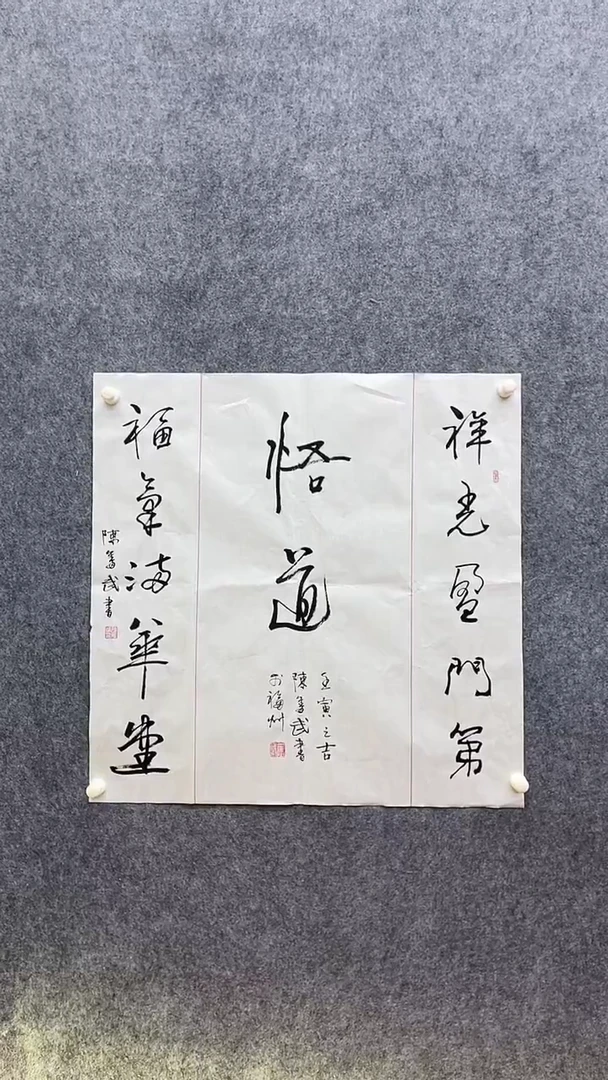 祥光盈門第
悟道
壬寅之吉
陳武書
於福州
福氣滿華堂
陳武書